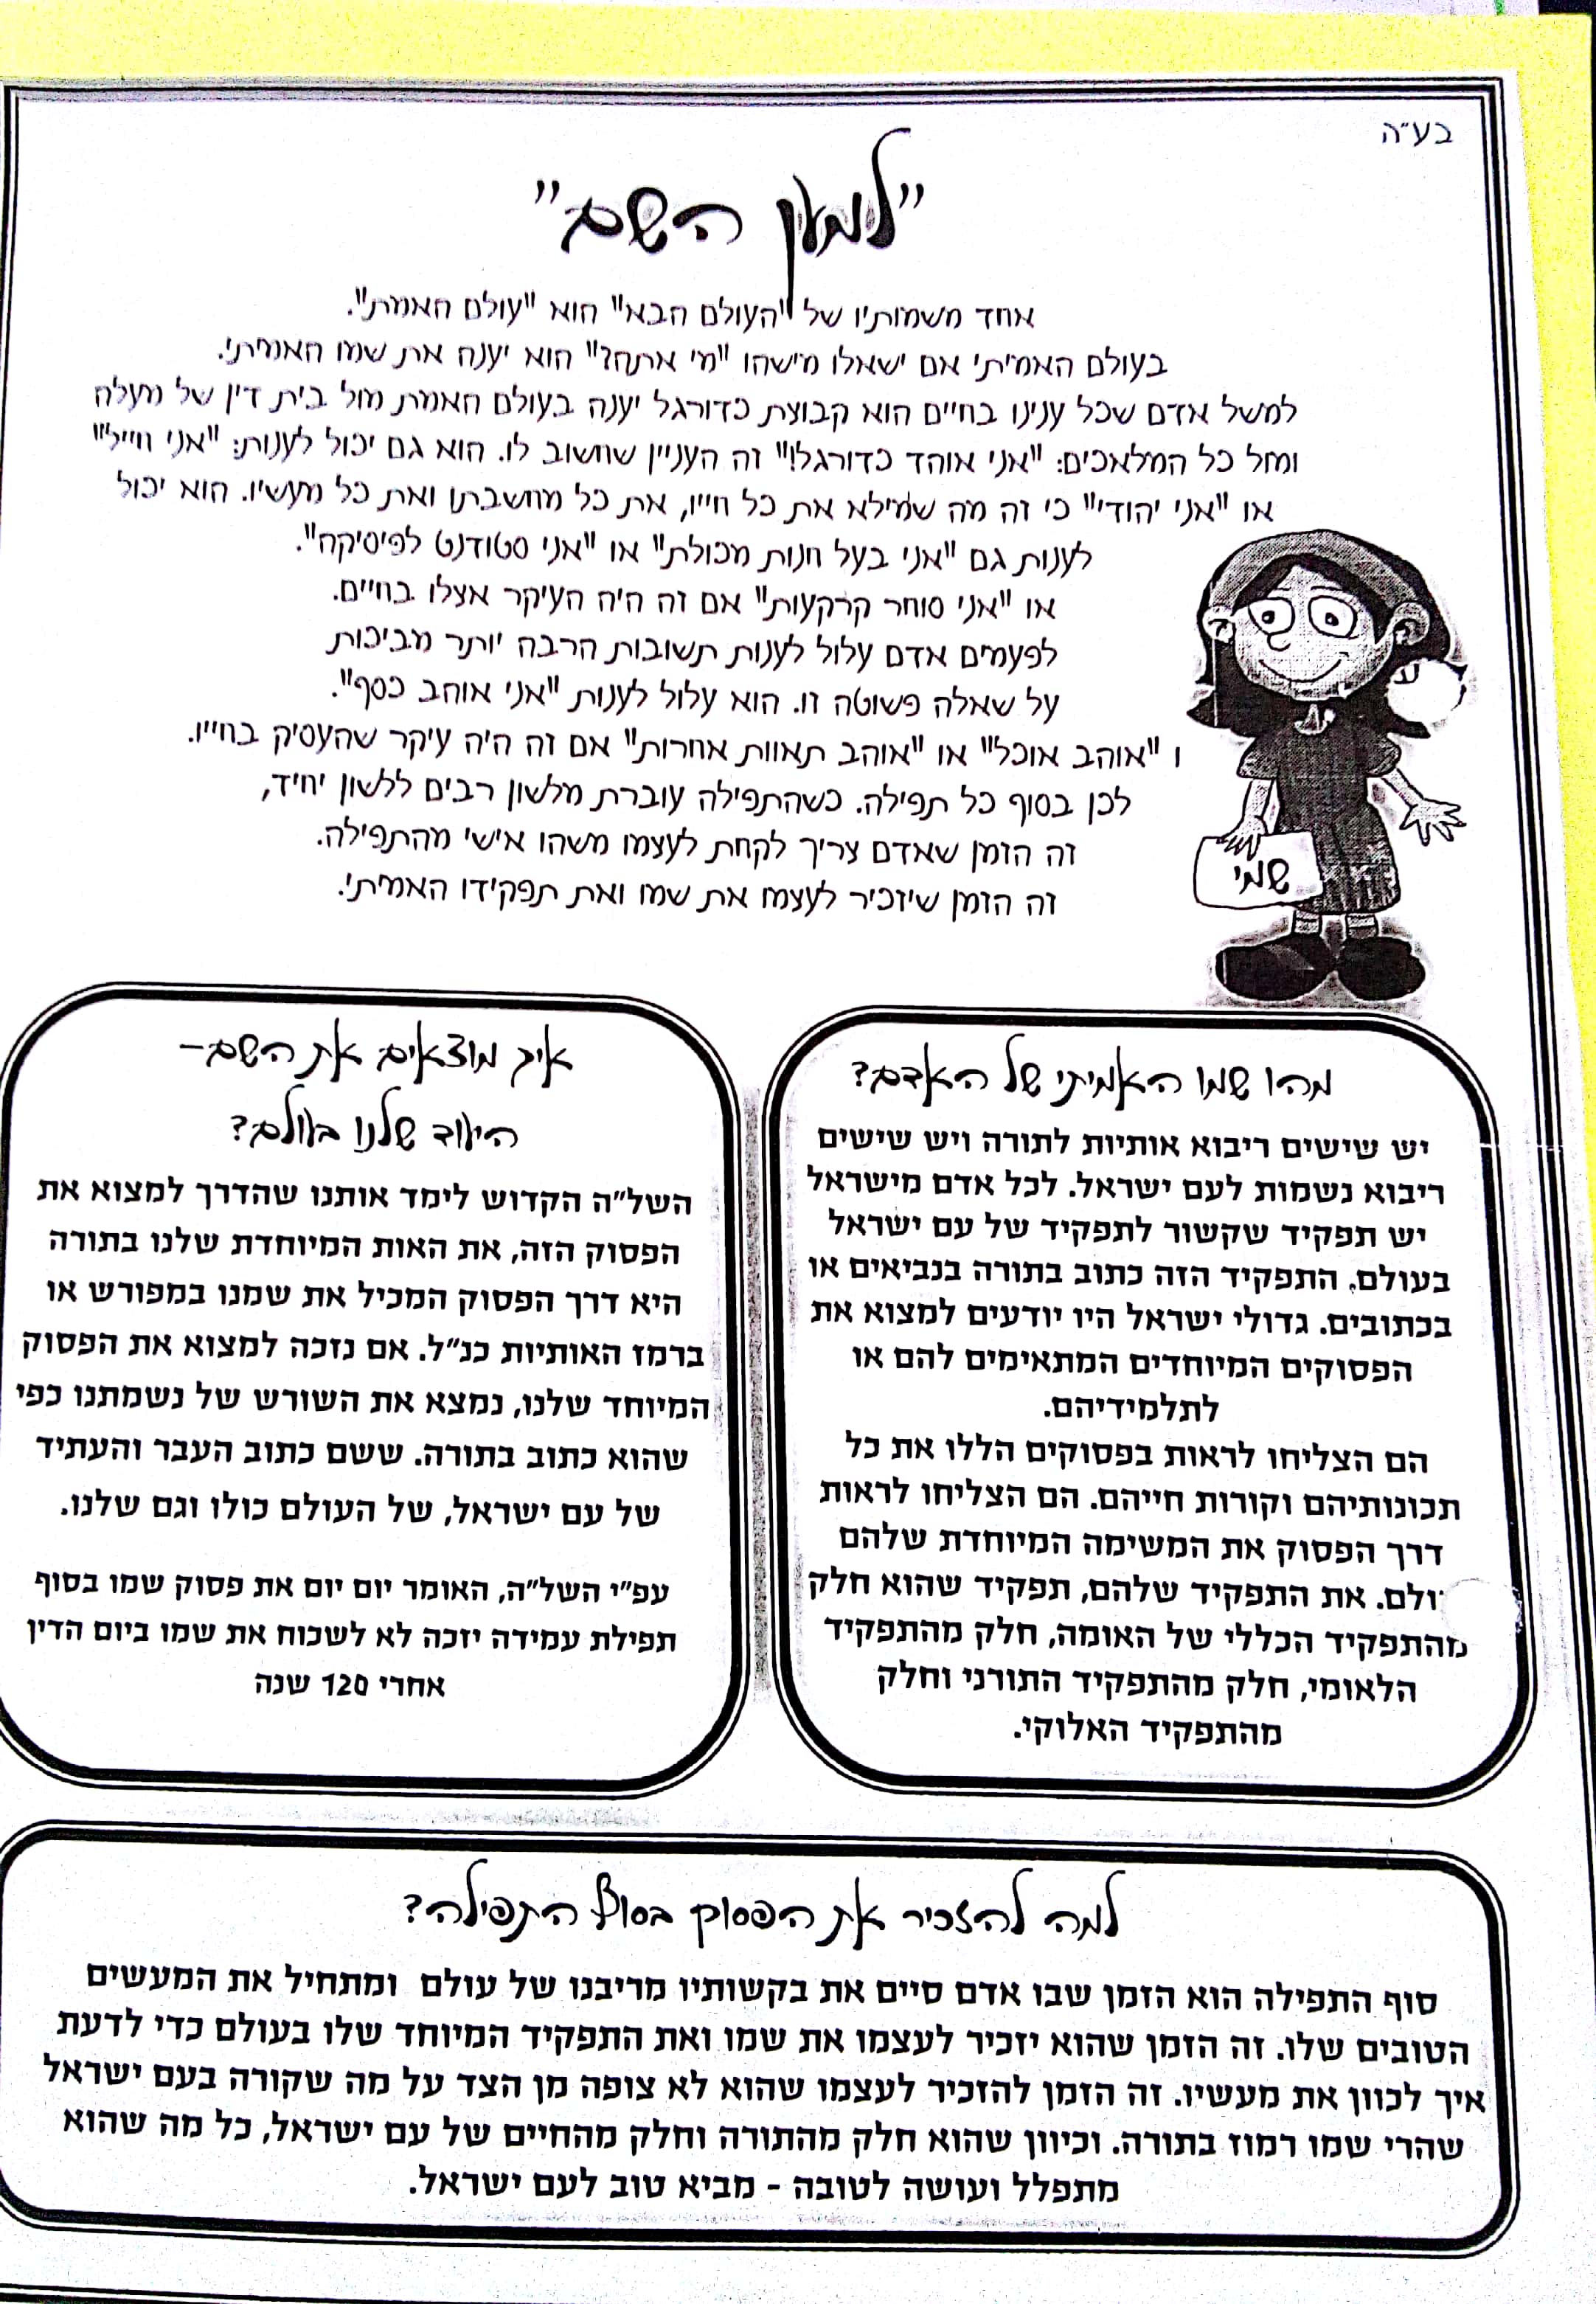 בע"ה
"למען השם"
אחד משמותיו של "העולם הבא" הוא "עולם האמת".
בעולם האמיתי אם ישאלו מישהו "מי אתה?" הוא יענה את שמו האמיתי.
למשל אדם שכל ענינו בחיים הוא קבוצת כדורגל יענה בעולם האמת מול בית דין של מעלה
ומול כל המלאכים: "אני אוהד כדורגל!" זה העניין שחשוב לו. הוא גם יכול לענות: "אני חייל"
או "אני יהודי" כי זה מה שמילא את כל חייו, את כל מחשבתו ואת כל מעשיו. הוא יכול
לענות גם "אני בעל חנות מכולת" או "אני סטודנט לפיסיקה".
או "אני סוחר קרקעות" אם זה היה העיקר אצלו בחיים.
לפעמים אדם עלול לענות תשובות הרבה יותר מביכות
על שאלה פשוטה זו. הוא עלול לענות "אני אוהב כסף".
ו "אוהב אוכל" או "אוהב תאוות אחרות" אם זה היה עיקר שהעסיק בחייו.
לכן בסוף כל תפילה. כשהתפילה עוברת מלשון רבים ללשון יחיד,
זה הזמן שאדם צריך לקחת לעצמו משהו אישי מהתפילה.
זה הזמן שיזכיר לעצמו את שמו ואת תפקידו האמיתי.
שמי
מהו שמו האמיתי של האדם?
יש שישים ריבוא אותיות לתורה ויש שישים
ריבוא נשמות לעם ישראל. לכל אדם מישראל
יש תפקיד שקשור לתפקיד של עם ישראל
בעולם. התפקיד הזה כתוב בתורה בנביאים או
בכתובים. גדולי ישראל היו יודעים למצוא את
הפסוקים המיוחדים המתאימים להם או
לתלמידיהם.
הם הצליחו לראות בפסוקים הללו את כל
תכונותיהם וקורות חייהם. הם הצליחו לראות
דרך הפסוק את המשימה המיוחדת שלהם
ולם. את התפקיד שלהם, תפקיד שהוא חלק
מהתפקיד הכללי של האומה, חלק מהתפקיד
הלאומי, חלק מהתפקיד התורני וחלק
מהתפקיד האלוקי.
איך מוצאים את השם-
היעוד שלנו בעולם?
השל"ה הקדוש לימד אותנו שהדרך למצוא את
הפסוק הזה, את האות המיוחדת שלנו בתורה
היא דרך הפסוק המכיל את שמנו במפורש או
ברמז האותיות כנ"ל. אם נזכה למצוא את הפסוק
המיוחד שלנו, נמצא את השורש של נשמתנו כפי
שהוא כתוב בתורה. ששם כתוב העבר והעתיד
של עם ישראל, של העולם כולו וגם שלנו.
עפ"י השל"ה, האומר יום יום את פסוק שמו בסוף
תפילת עמידה יזכה לא לשכוח את שמו ביום הדין
אחרי 120 שנה
למה להזכיר את הפסוק בסוף התפילה?
סוף התפילה הוא הזמן שבו אדם סיים את בקשותיו מריבנו של עולם ומתחיל את המעשים
הטובים שלו. זה הזמן שהוא יזכיר לעצמו את שמו ואת התפקיד המיוחד שלו בעולם כדי לדעת
איך לכוון את מעשיו. זה הזמן להזכיר לעצמו שהוא לא צופה מן הצד על מה שקורה בעם ישראל
שהרי שמו רמוז בתורה. וכיוון שהוא חלק מהתורה וחלק מהחיים של עם ישראל, כל מה שהוא
מתפלל ועושה לטובה - מביא טוב לעם ישראל.